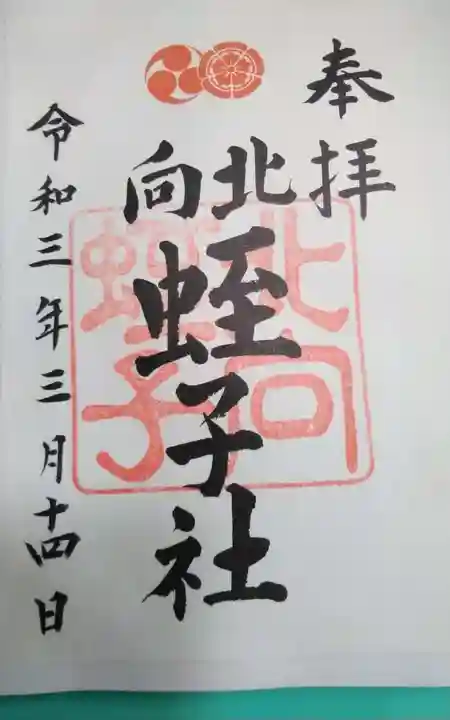 奉拝
北向
蛭子社
北向
蛭子
令和三年三月十四日